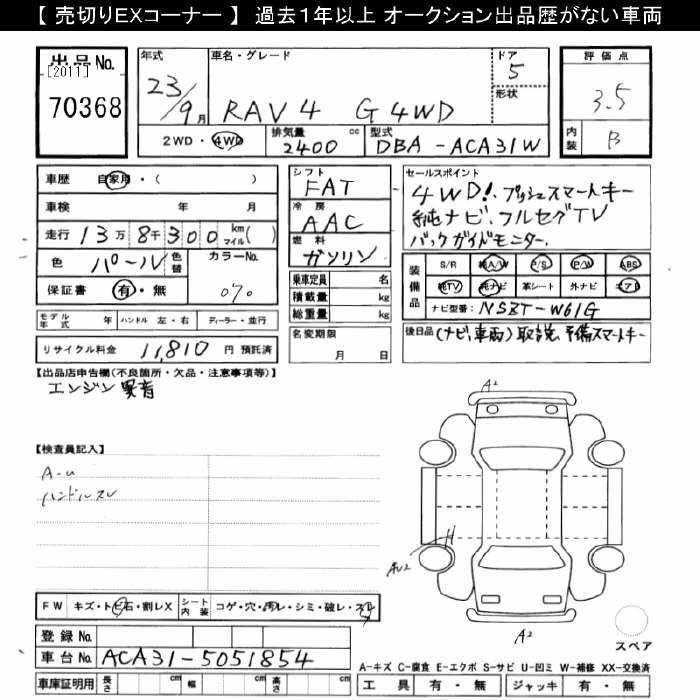 【 売切りEXコーナー 】 過去1年以上 オークション出品歴がない車両
出品No.
[2011]
70368
年式
23/9月
車名・グレード
RAV4 G 4WD
ドア
5
形状
評価点
3.5
内装
B
2WD・4WD
排気量
2400 cc
型式
DBA-ACA31W
車歴 自家用・( )
車検 年 月
走行 13万8千300 km マイル( )
色 パール 色替
カラーNo.
070
保証書 有・無
モデル年式 ハンドル 左・右 ディーラー・並行
リサイクル料金 11,810 円 預託済
シフト
FAT
冷房
AAC
燃料
ガソリン
乗車定員 名
積載量 kg
総重量 kg
名変期限
月 日
セールスポイント
4WD!、プッシュスマートキー
純ナビ、フルセグTV
バックガイドモニター、
装備品
S/R 純A/W P/S P/W ABS
純TV 純ナビ 革シート 外ナビ エアB
ナビ型番: NSZT-W61G
後日品 (ナビ、車両)取説、予備スマートキー
【出品店申告欄(不良箇所・欠品・注意事項等)】
エンジン異音
【検査員記入】
A-u
ハンドルスレ
A2
H
AU2
A2
スペア
FW キズ・トビ石・割レX シート内装 コゲ・穴・汚レ・シミ・破レ・スレ
登録No.
車台No. ACA31-5051854
車庫証明用 長さ cm 幅 cm 高さ cm
A-キズ C-腐食 E-エクボ S-サビ U-凹ミ W-補修 XX-交換済
工具 有・無 ジャッキ 有・無